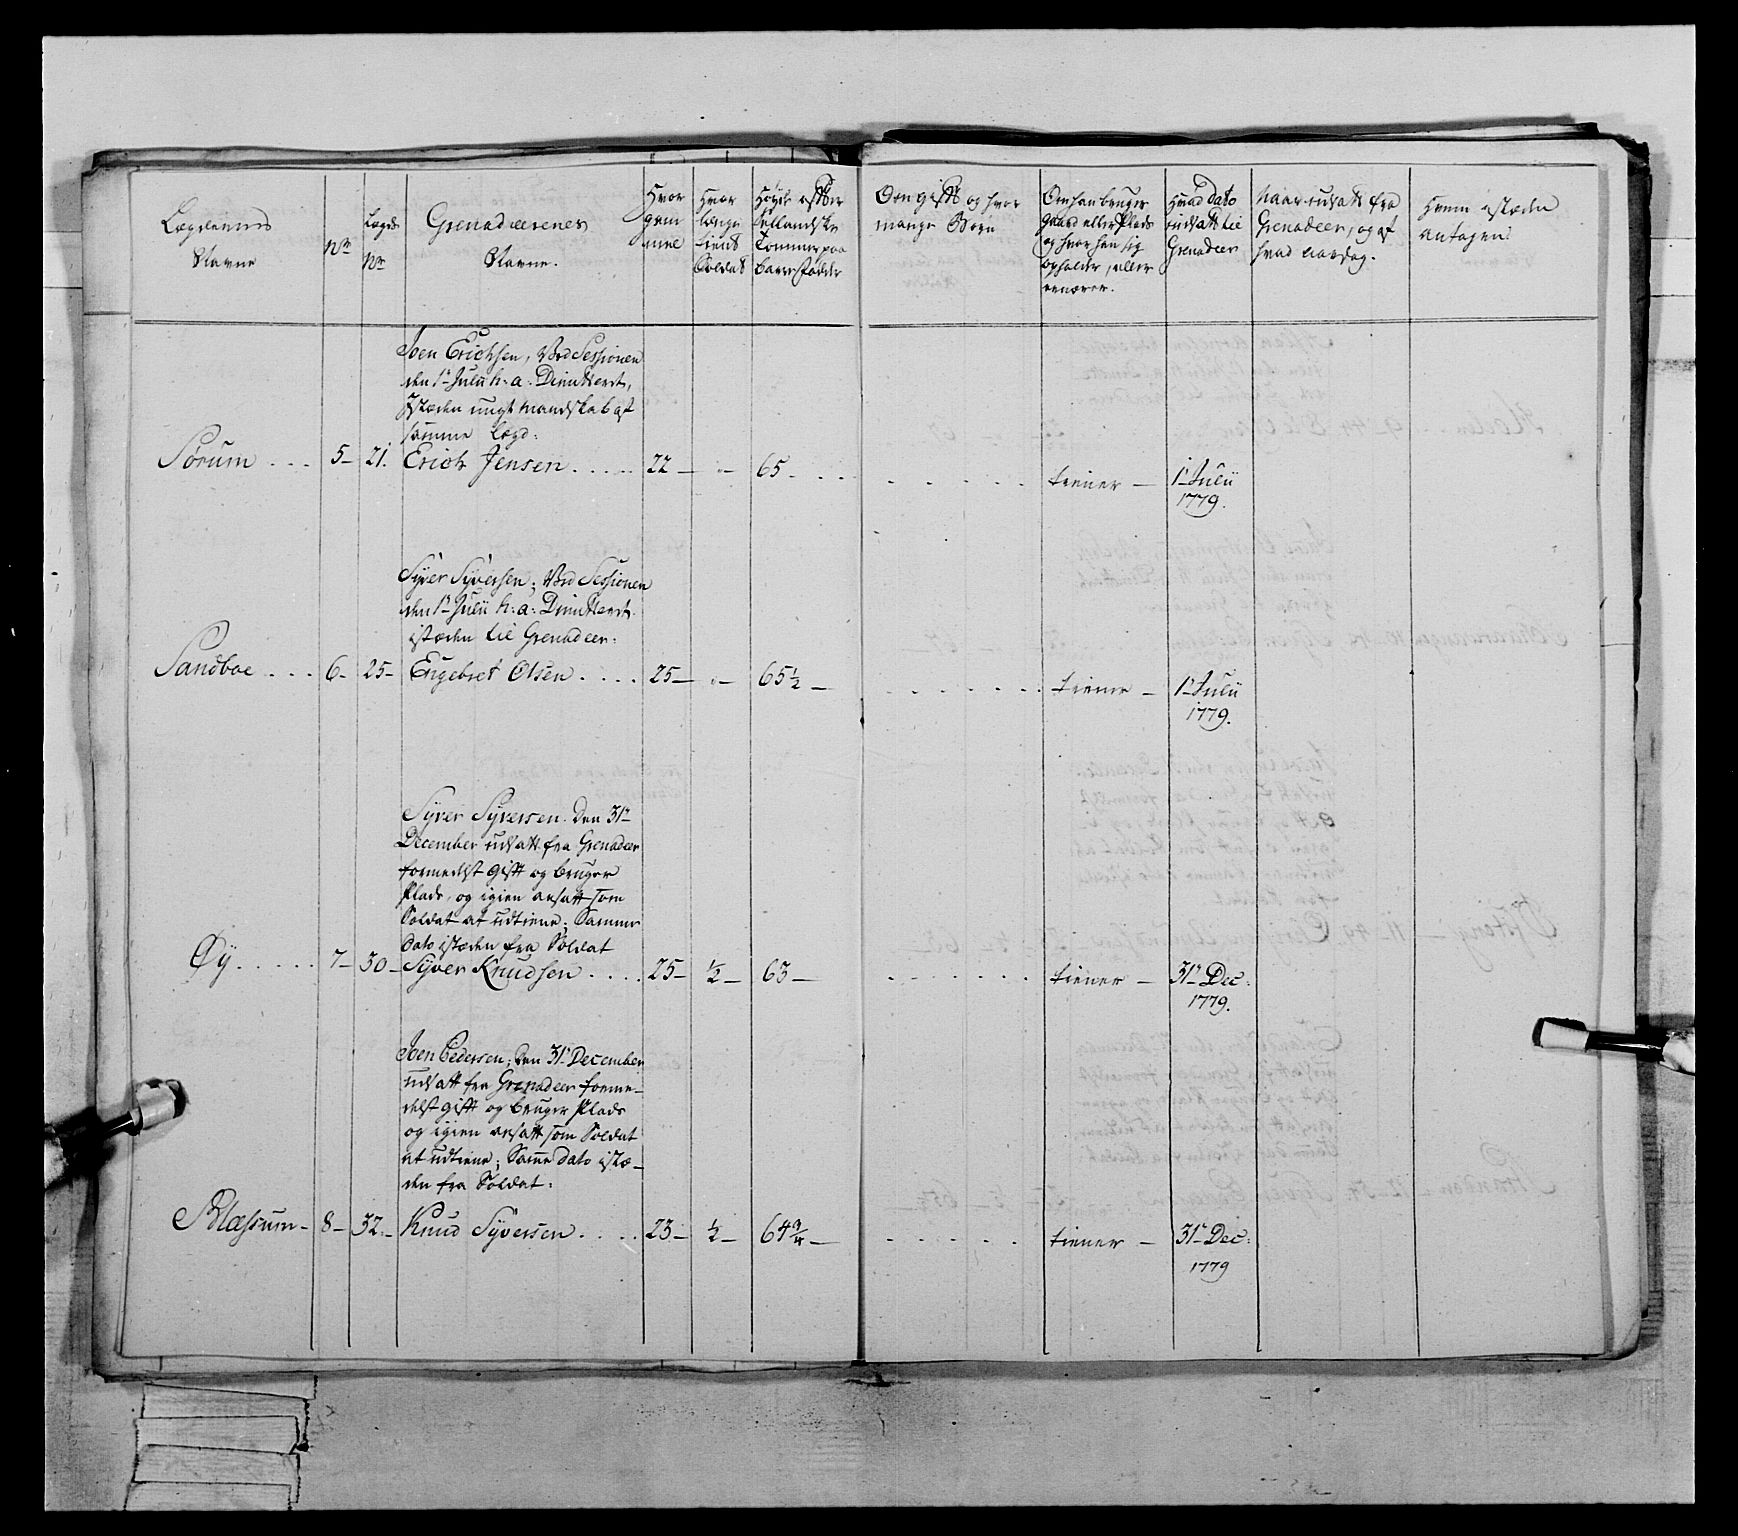 Lægdernes
Navne
No
Lægds
No
Grenadeerenes
Navne.
Hvor
gam
mel
Hvor
længe
tient
Soldat
Høyde efter
Sellandske
Tommer paa
bare Fødder
Om gift og hvor
mange Børn
Om han bruger
Gaard eller Plads
og hvor han sig
opholder, eller
ernærer.
Hvad dato
udsatt til
Grenadeer
Naar udsatt fra
Grenadeer, og af
hvad aarsag.
Hvem istæden
antagen
Joen Erichsen, Ved Sessionen
den 1te Julii h: a: Dimitteret,
Istæden ungt mandskab af
samme Lægd:
Sørum . . . 5 - 21. Erich Jensen . . . . . 22 - " - 65 - . . . tiener - 1te Julii
1779.
Syver Syversen; Ved Sessionen
den 1te Julii h: a: Dimitteret
istæden til Grenadeer:
Sandboe . . . 6 - 25 - Engebret Olsen . . . . 25 - " - 65 1/2 - . . . tiener - 1te Julii
1779.
Syver Syversen. Den 31te
December udsatt fra Grenadeer
formedelst gift og bruger
Plads, og igien ansatt som
Soldat at udtiene; Samme
dato istæden fra Soldat
Øy . . . . . 7 - 30 - Syver Knudsen . . . . 25 - 1/2 - 63 - . . . tiener - 31te Dec:
1779.
Joen Pedersen; den 31te December
udsatt fra Grenadeer forme-
delst gift og bruger Plads
og igien ansatt som Soldat
at udtiene; Samme dato istæ-
den fra Soldat:
Blæssum - 8 - 32. - Knud Syversen . . . . 23 - 1/2 - 64 3/4 - . . . tiener - 31te Dec:
1779